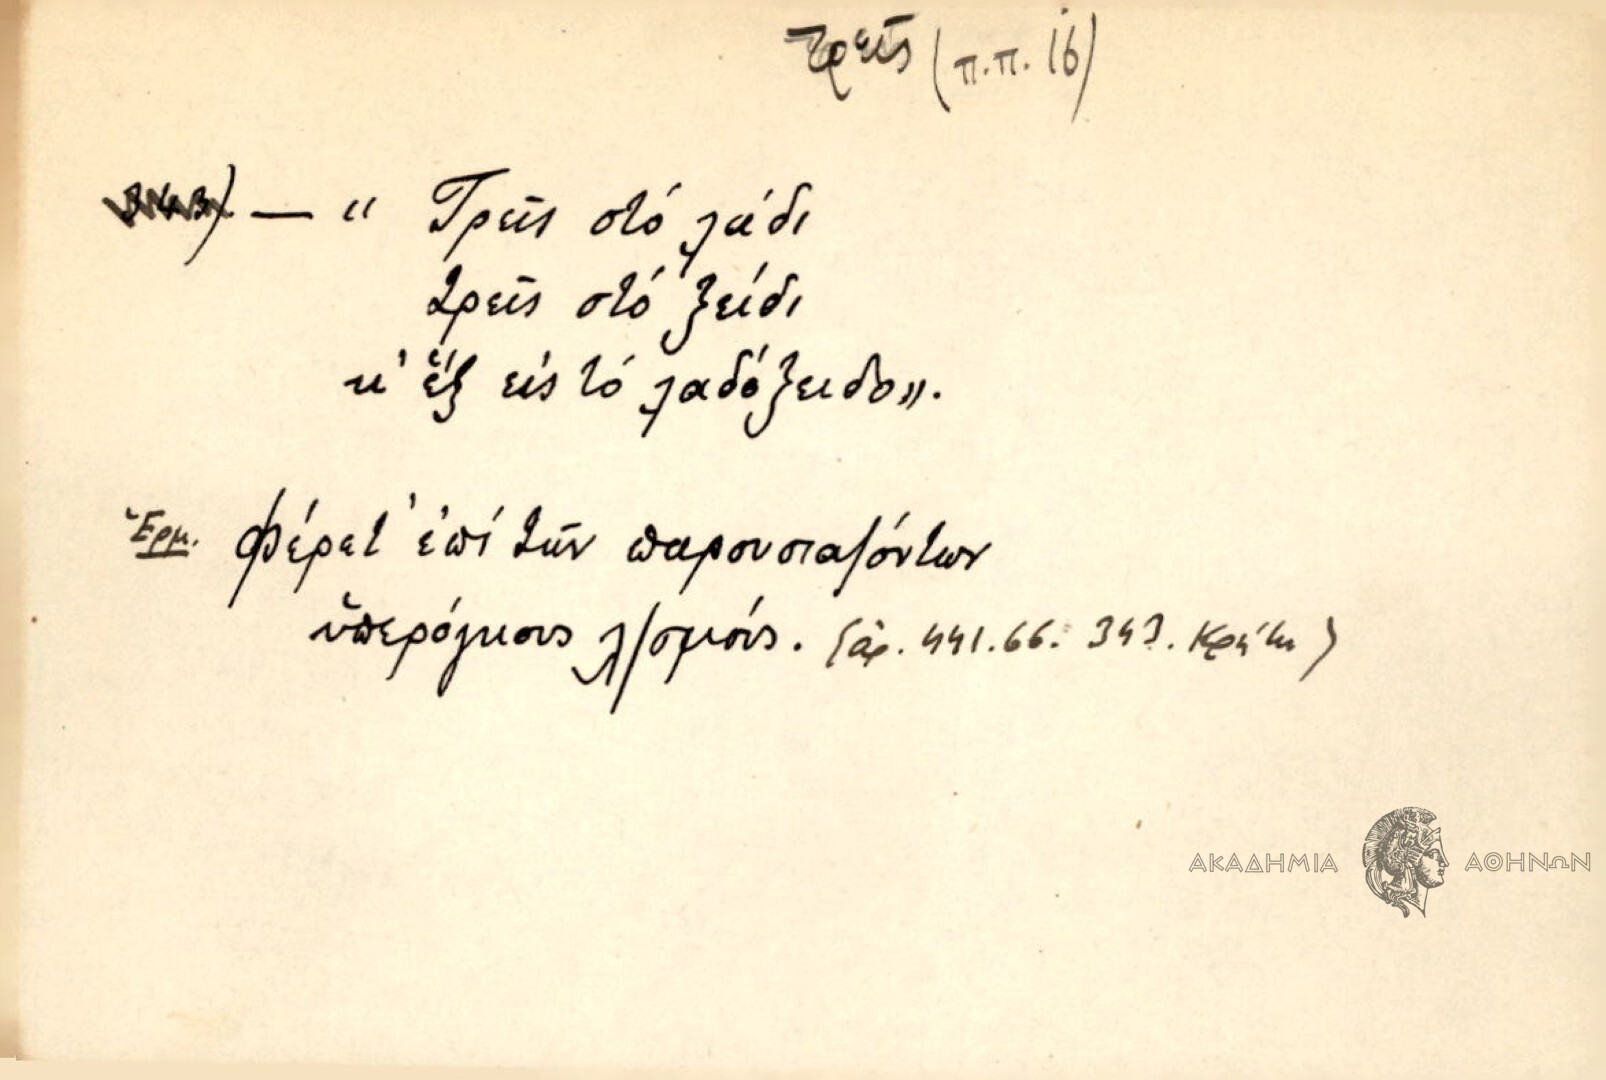 τρεῖς (π.π. 16)
343) — « Τρεῖς στό λάδι
τρεῖς στό ξείδι
κ' ἕξ εἰς τό λαδόξειδο».
Ἑρμ. Φέρετ' ἐπί τῶν παρουσιαζόντων
ὑπερόγκους λ/σμούς. (ἀρ. 441.66. 343. Κρήτη)
ΑΚΑΔΗΜΙΑ ΑΘΗΝΩΝ